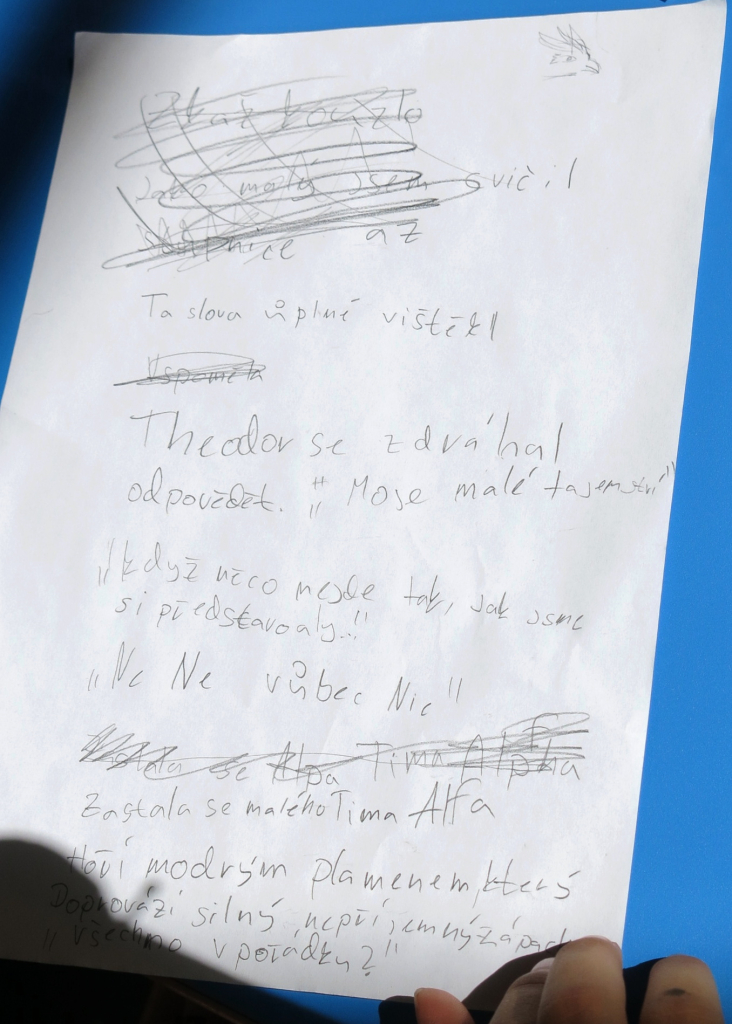 Zkaž kouzlo
Jako malý jsem cvičil
slepnice až
Ta slova ůplně vištěkl
Vspoměla
Theodor se zdváhal
odpovědět. " „ Moje malé tajemství"
„když něco nejde tak, jak jsme
si představovaly..."
„Ne Ne vůbec Nic"
se Alpa Tima Alpha
Zastala se malého Tima Alfa
Hoří modrým plamenem, který
Doprovází silný, nepříjemný zápach
„Všechno v pořádku?"